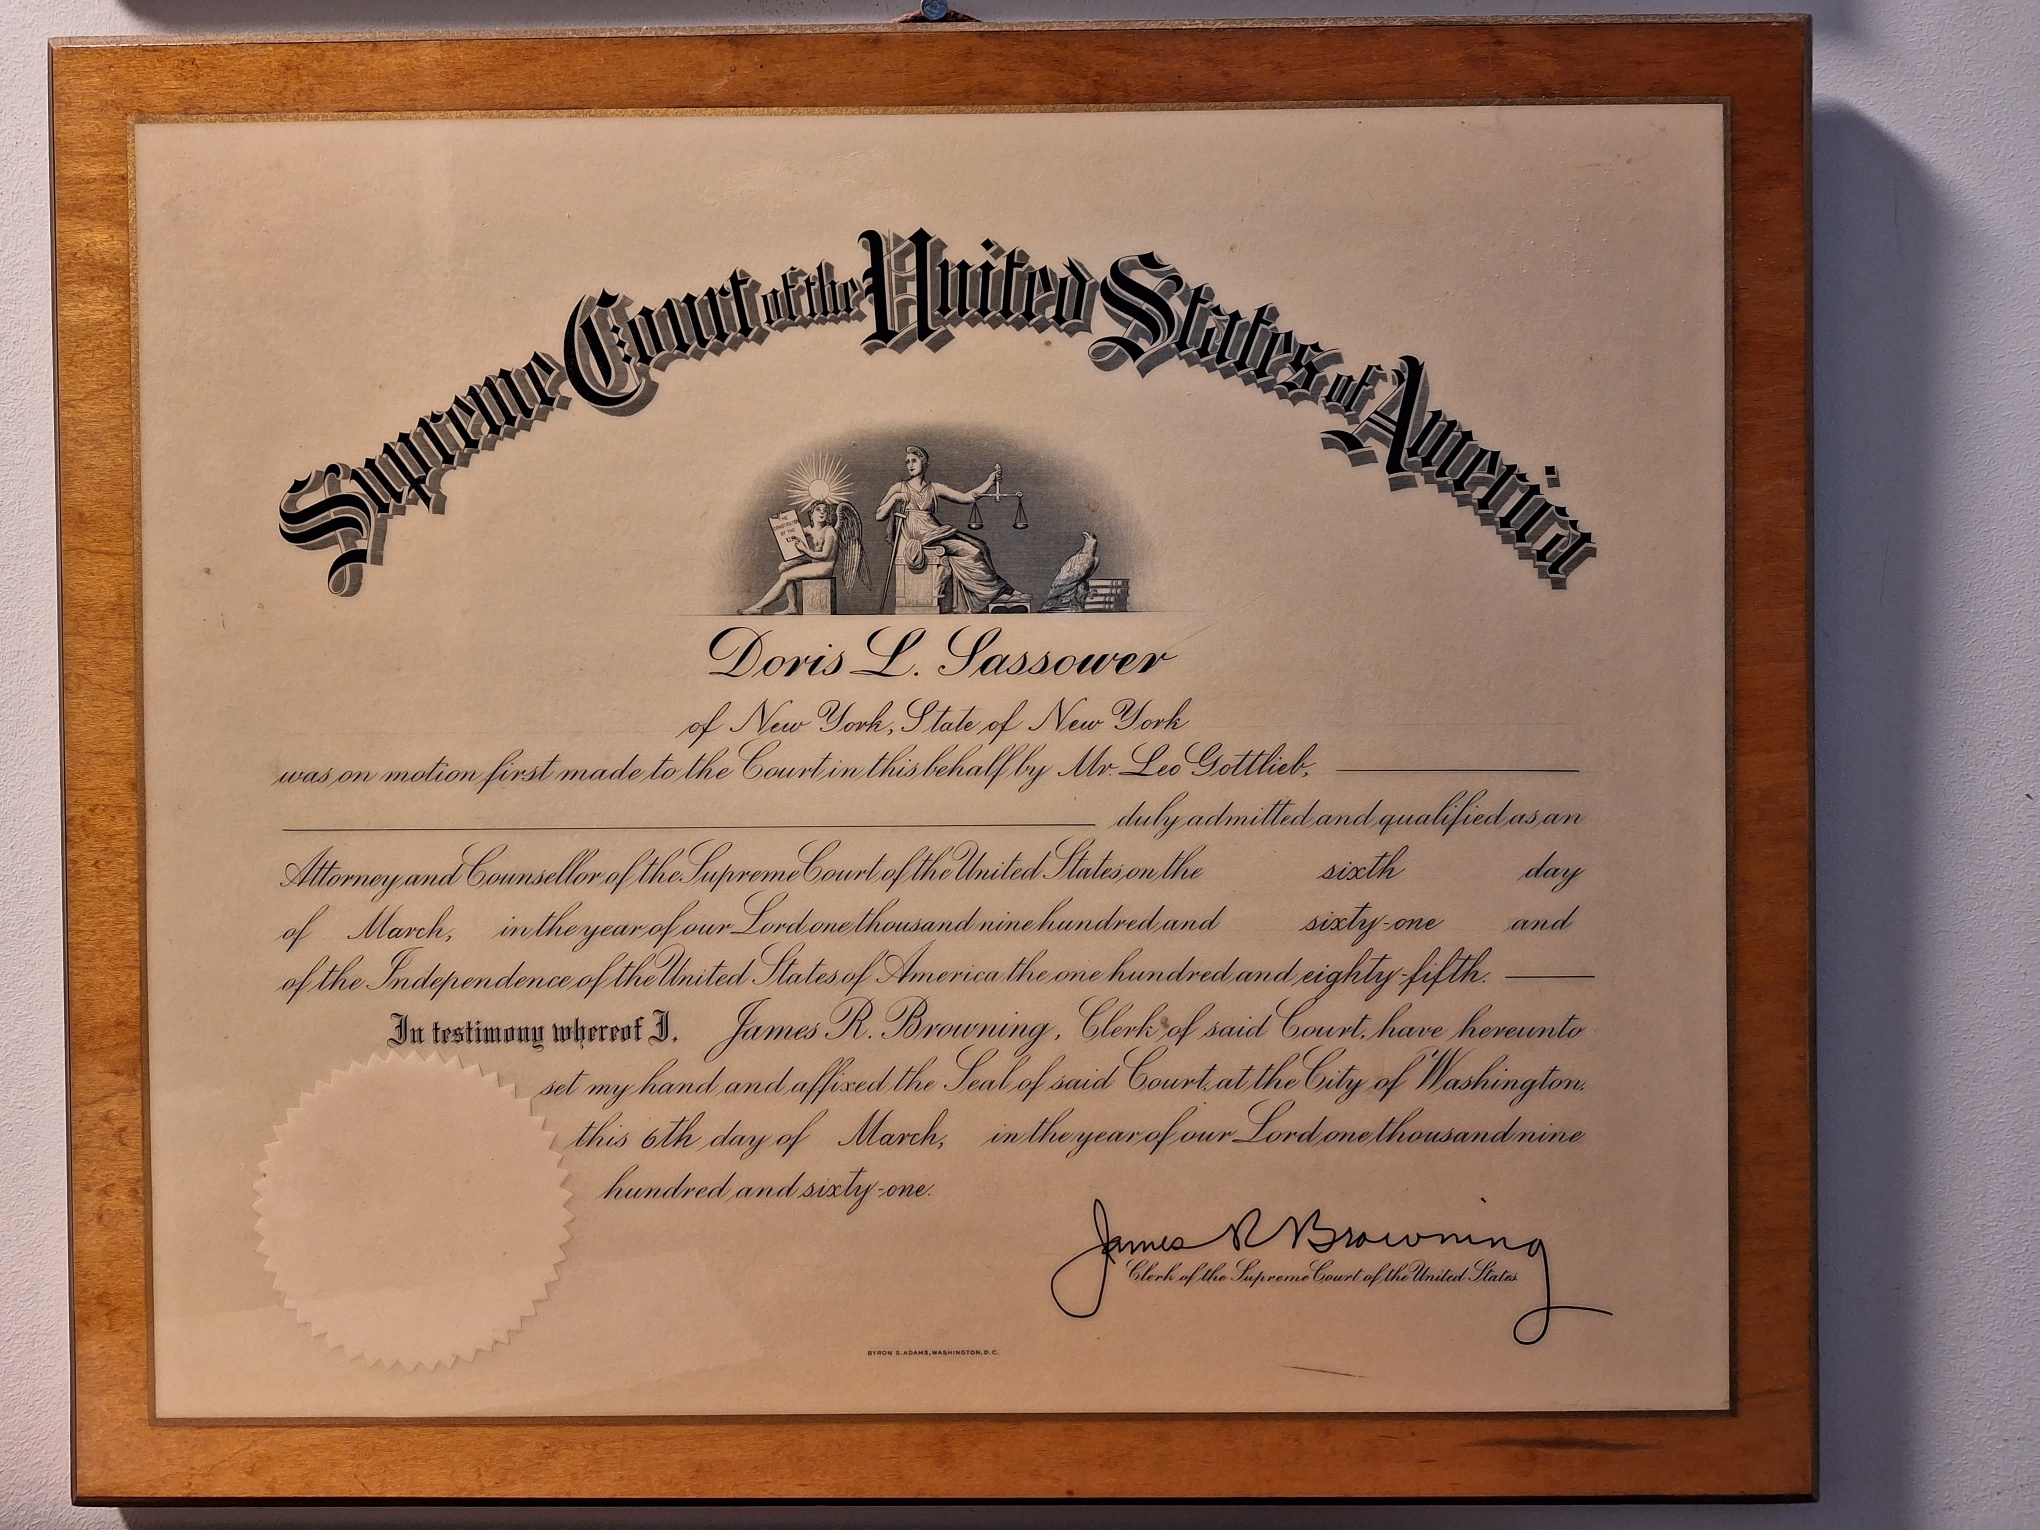 Supreme Court of the United States of America
THE
CONSTITUTION
OF THE
U.S.
Doris L. Sassower
of New York, State of New York
was on motion first made to the Court in this behalf by Mr. Leo Gottlieb,
duly admitted and qualified as an
Attorney and Counsellor of the Supreme Court of the United States on the sixth day
of March, in the year of our Lord one thousand nine hundred and sixty-one and
of the Independence of the United States of America the one hundred and eighty-fifth.
In testimony whereof I, James R. Browning, Clerk of said Court, have hereunto
set my hand and affixed the Seal of said Court, at the City of Washington,
this 6th day of March, in the year of our Lord one thousand nine
hundred and sixty-one.
James R Browning
Clerk of the Supreme Court of the United States
BYRON S. ADAMS, WASHINGTON, D.C.